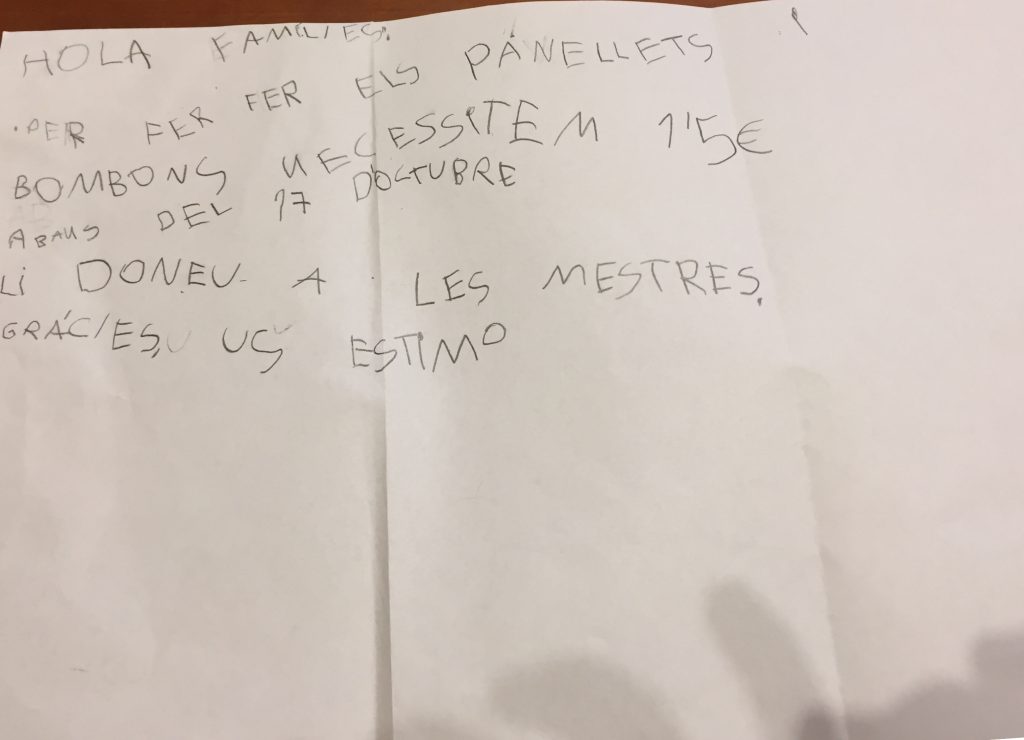 HOLA FAMÍLIES:
·PER FER FER ELS PANELLETS I
BOMBONS NECESSITEM 1'5€
ABANS DEL 17 D'OCTUBRE
LI DONEU A LES MESTRES.
GRÁCIES, US ESTIMO